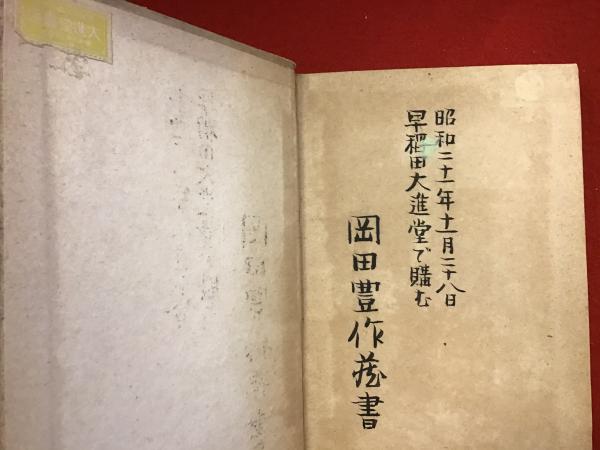 昭和二十一年十一月二十八日
早稲田大進堂で購む
岡田豊作蔵書